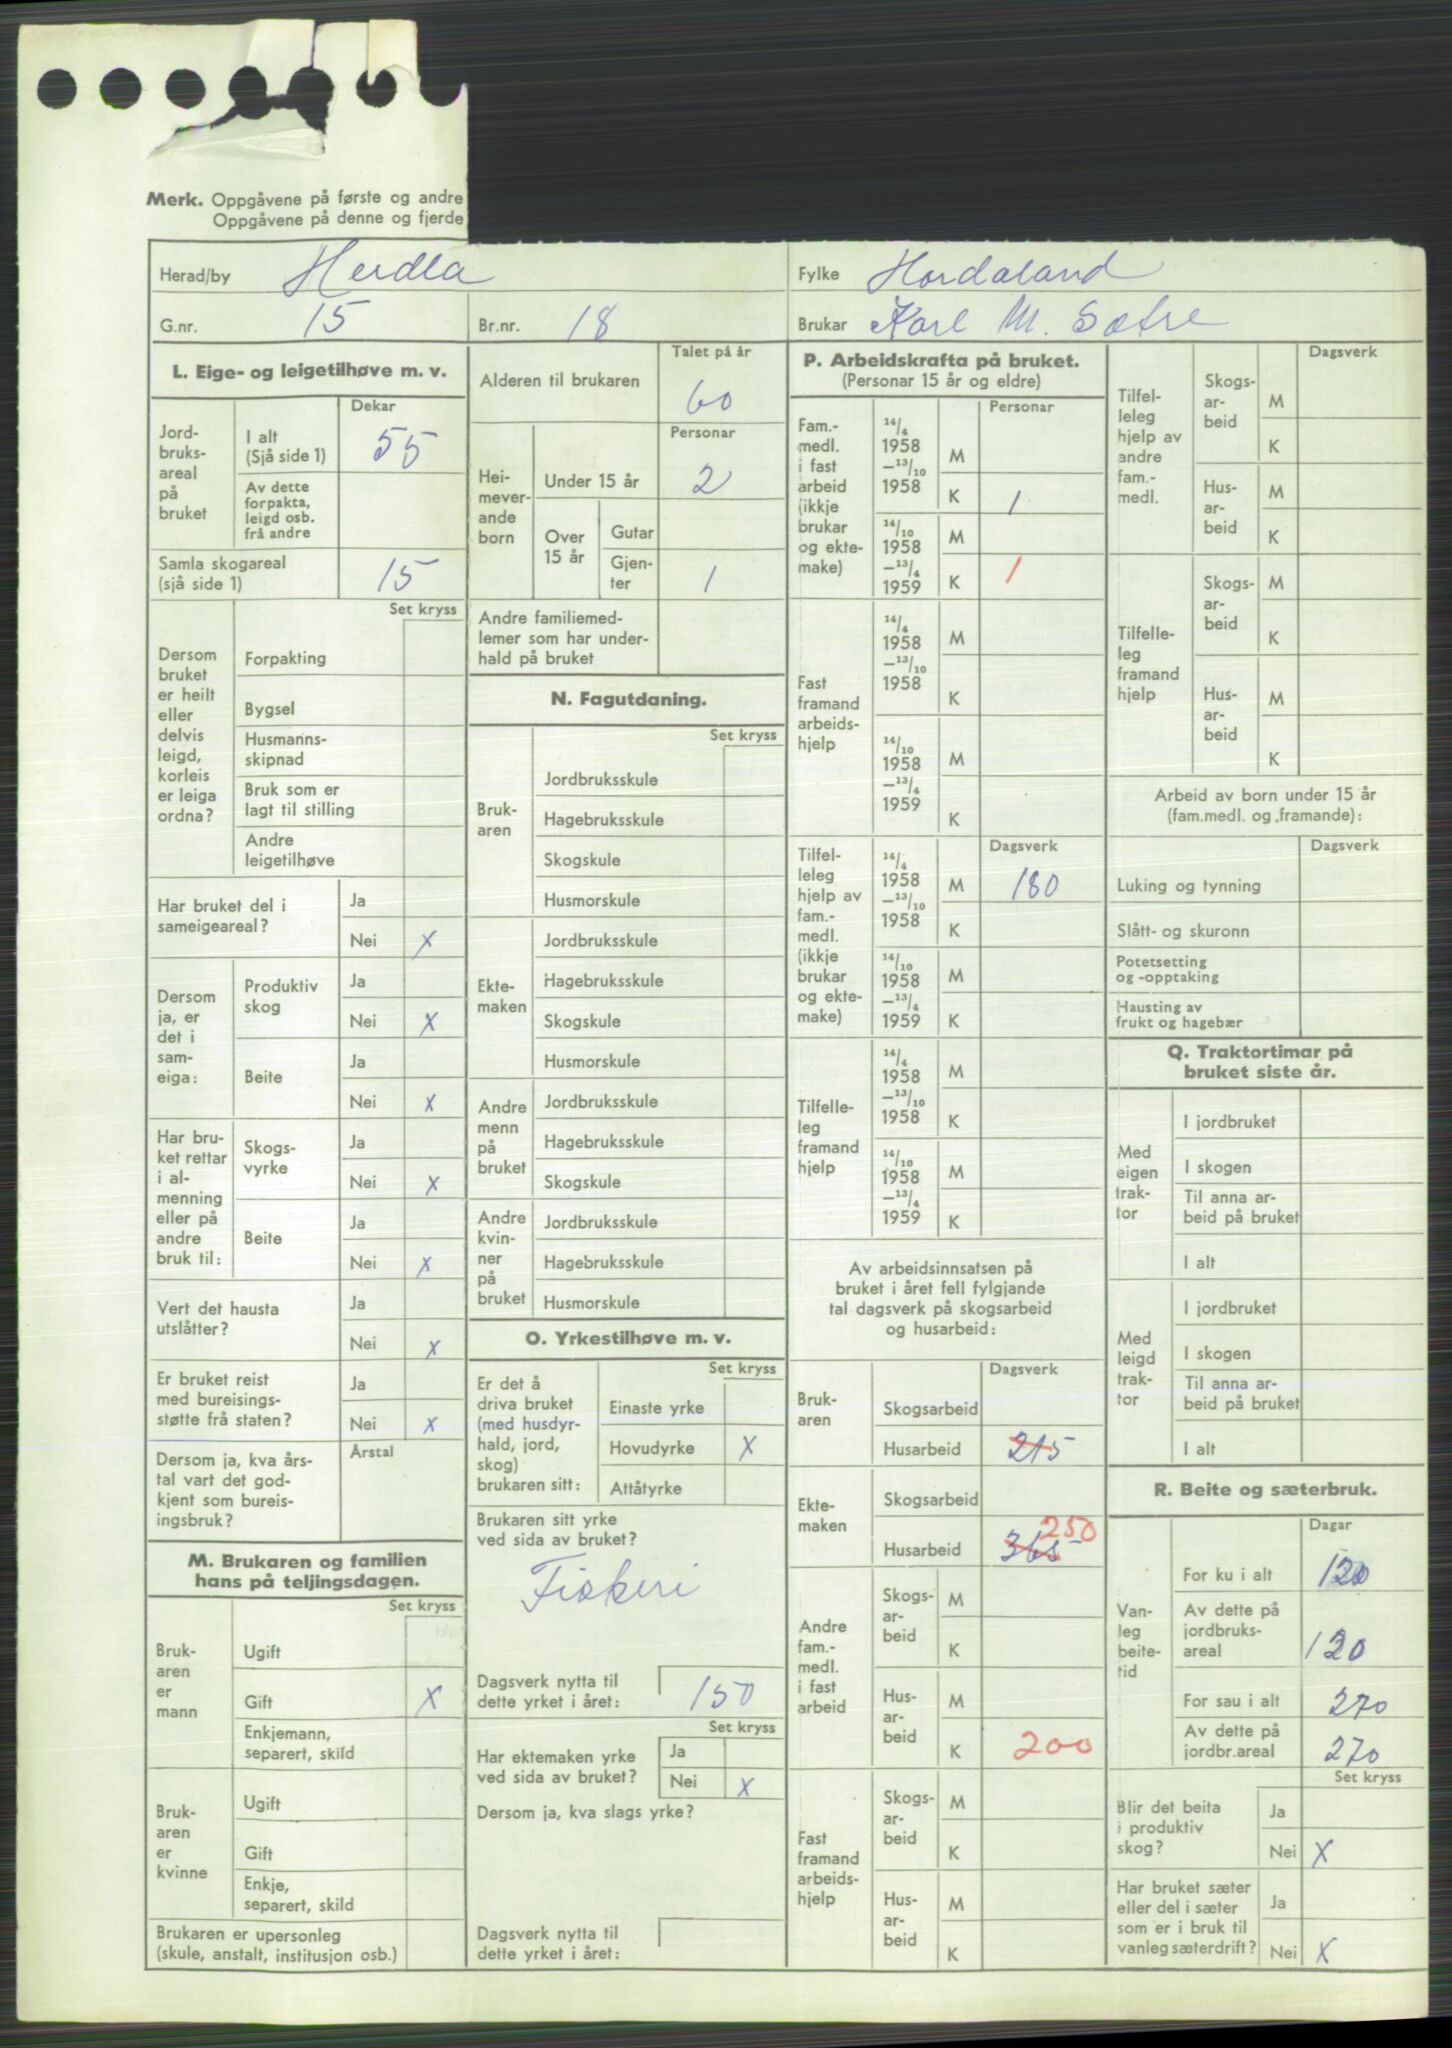 Merk. Oppgåvene på første og andre
Oppgåvene på denne og fjerde
Herad/by Herdla
Fylke Hordaland
G.nr. 15
Br.nr. 18
Brukar Karl M. Sætre
L. Eige- og leigetilhøve m. v.
Dekar
Jord-
bruks-
areal
på
bruket
I alt
(Sjå side 1) 55
Av dette
forpakta,
leigd osb.
frå andre
Samla skogareal
(sjå side 1) 15
Set kryss
Dersom
bruket
er heilt
eller
delvis
leigd,
korleis
er leiga
ordna?
Forpakting
Bygsel
Husmanns-
skipnad
Bruk som er
lagt til stilling
Andre
leigetilhøve
Har bruket del i
sameigeareal?
Ja
Nei X
Dersom
ja, er
det i
sam-
eiga:
Produktiv
skog
Ja
Nei X
Beite
Ja
Nei X
Har bru-
ket rettar
i al-
menning
eller på
andre
bruk til:
Skogs-
vyrke
Ja
Nei X
Beite
Ja
Nei X
Vert det hausta
utslåtter?
Ja
Nei X
Er bruket reist
med bureisings-
støtte frå staten?
Ja
Nei X
Dersom ja, kva års-
tal vart det god-
kjent som bureis-
ingsbruk?
Årstal
M. Brukaren og familien
hans på teljingsdagen.
Set kryss
Bruk-
aren
er
mann
Ugift
Gift X
Enkjemann,
separert, skild
Bruk-
aren
er
kvinne
Ugift
Gift
Enkje,
separert, skild
Brukaren er upersonleg
(skule, anstalt, institusjon osb.)
Talet på år
Alderen til brukaren 60
Personar
Hei-
mever-
ande
born
Under 15 år 2
Over
15 år
Gutar
Gjen-
ter 1
Andre familiemed-
lemer som har under-
hald på bruket
N. Fagutdaning.
Set kryss
Bruk-
aren
Jordbruksskule
Hagebruksskule
Skogskule
Husmorskule
Ekte-
maken
Jordbruksskule
Hagebruksskule
Skogskule
Husmorskule
Andre
menn
på
bruket
Jordbruksskule
Hagebruksskule
Skogskule
Andre
kvin-
ner
på
bruket
Jordbruksskule
Hagebruksskule
Husmorskule
O. Yrkestilhøve m. v.
Set kryss
Er det å
driva bruket
(med husdyr-
hald, jord,
skog)
brukaren sitt:
Einaste yrke
Hovudyrke X
Attåtyrke
Brukaren sitt yrke
ved sida av bruket?
Fiskeri
Dagsverk nytta til
dette yrket i året: 150
Set kryss
Har ektemaken yrke
ved sida av bruket?
Ja
Nei X
Dersom ja, kva slags yrke?
Dagsverk nytta til
dette yrket i året:
P. Arbeidskrafta på bruket.
(Personar 15 år og eldre)
Personar
Fam.-
medl.
i fast
arbeid
(ikkje
brukar
og ekte-
make)
14/4
1958
–13/10
1958
M
K 1
14/10
1958
–13/4
1959
M
K 1
Fast
framand
arbeids-
hjelp
14/4
1958
–13/10
1958
M
K
14/10
1958
–13/4
1959
M
K
Dagsverk
Tilfel-
leleg
hjelp av
fam.-
medl.
(ikkje
brukar
og ekte-
make)
14/4
1958
–13/10
1958
M 180
K
14/10
1958
–13/4
1959
M
K
Tilfelle-
leg
framand
hjelp
14/4
1958
–13/10
1958
M
K
14/10
1958
–13/4
1959
M
K
Av arbeidsinnsatsen på
bruket i året fell fylgjande
tal dagsverk på skogsarbeid
og husarbeid:
Dagsverk
Bruk-
aren
Skogsarbeid
Husarbeid 215
Ekte-
maken
Skogsarbeid
250
Husarbeid 365
Andre
fam.-
medl.
i fast
arbeid
Skogs-
ar-
beid
M
K
Hus-
ar-
beid
M
K 200
Fast
framand
arbeids-
hjelp
Skogs-
ar-
beid
M
K
Hus-
ar-
beid
M
K
Dagsverk
Tilfel-
leleg
hjelp av
andre
fam.-
medl.
Skogs-
ar-
beid
M
K
Hus-
ar-
beid
M
K
Tilfelle-
leg
framand
hjelp
Skogs-
ar-
beid
M
K
Hus-
ar-
beid
M
K
Arbeid av born under 15 år
(fam.medl. og framande):
Dagsverk
Luking og tynning
Slått- og skuronn
Potetsetting
og -opptaking
Hausting av
frukt og hagebær
Q. Traktortimar på
bruket siste år.
Med
eigen
trak-
tor
I jordbruket
I skogen
Til anna ar-
beid på bruket
I alt
Med
leigd
trak-
tor
I jordbruket
I skogen
Til anna ar-
beid på bruket
I alt
R. Beite og sæterbruk.
Dagar
Van-
leg
beite-
tid
For ku i alt 120
Av dette på
jordbruks-
areal 120
For sau i alt 270
Av dette på
jordbr.areal 270
Set kryss
Blir det beita
i produktiv
skog?
Ja
Nei X
Har bruket sæter
eller del i sæter
som er i bruk til
vanleg sæterdrift?
Ja
Nei X